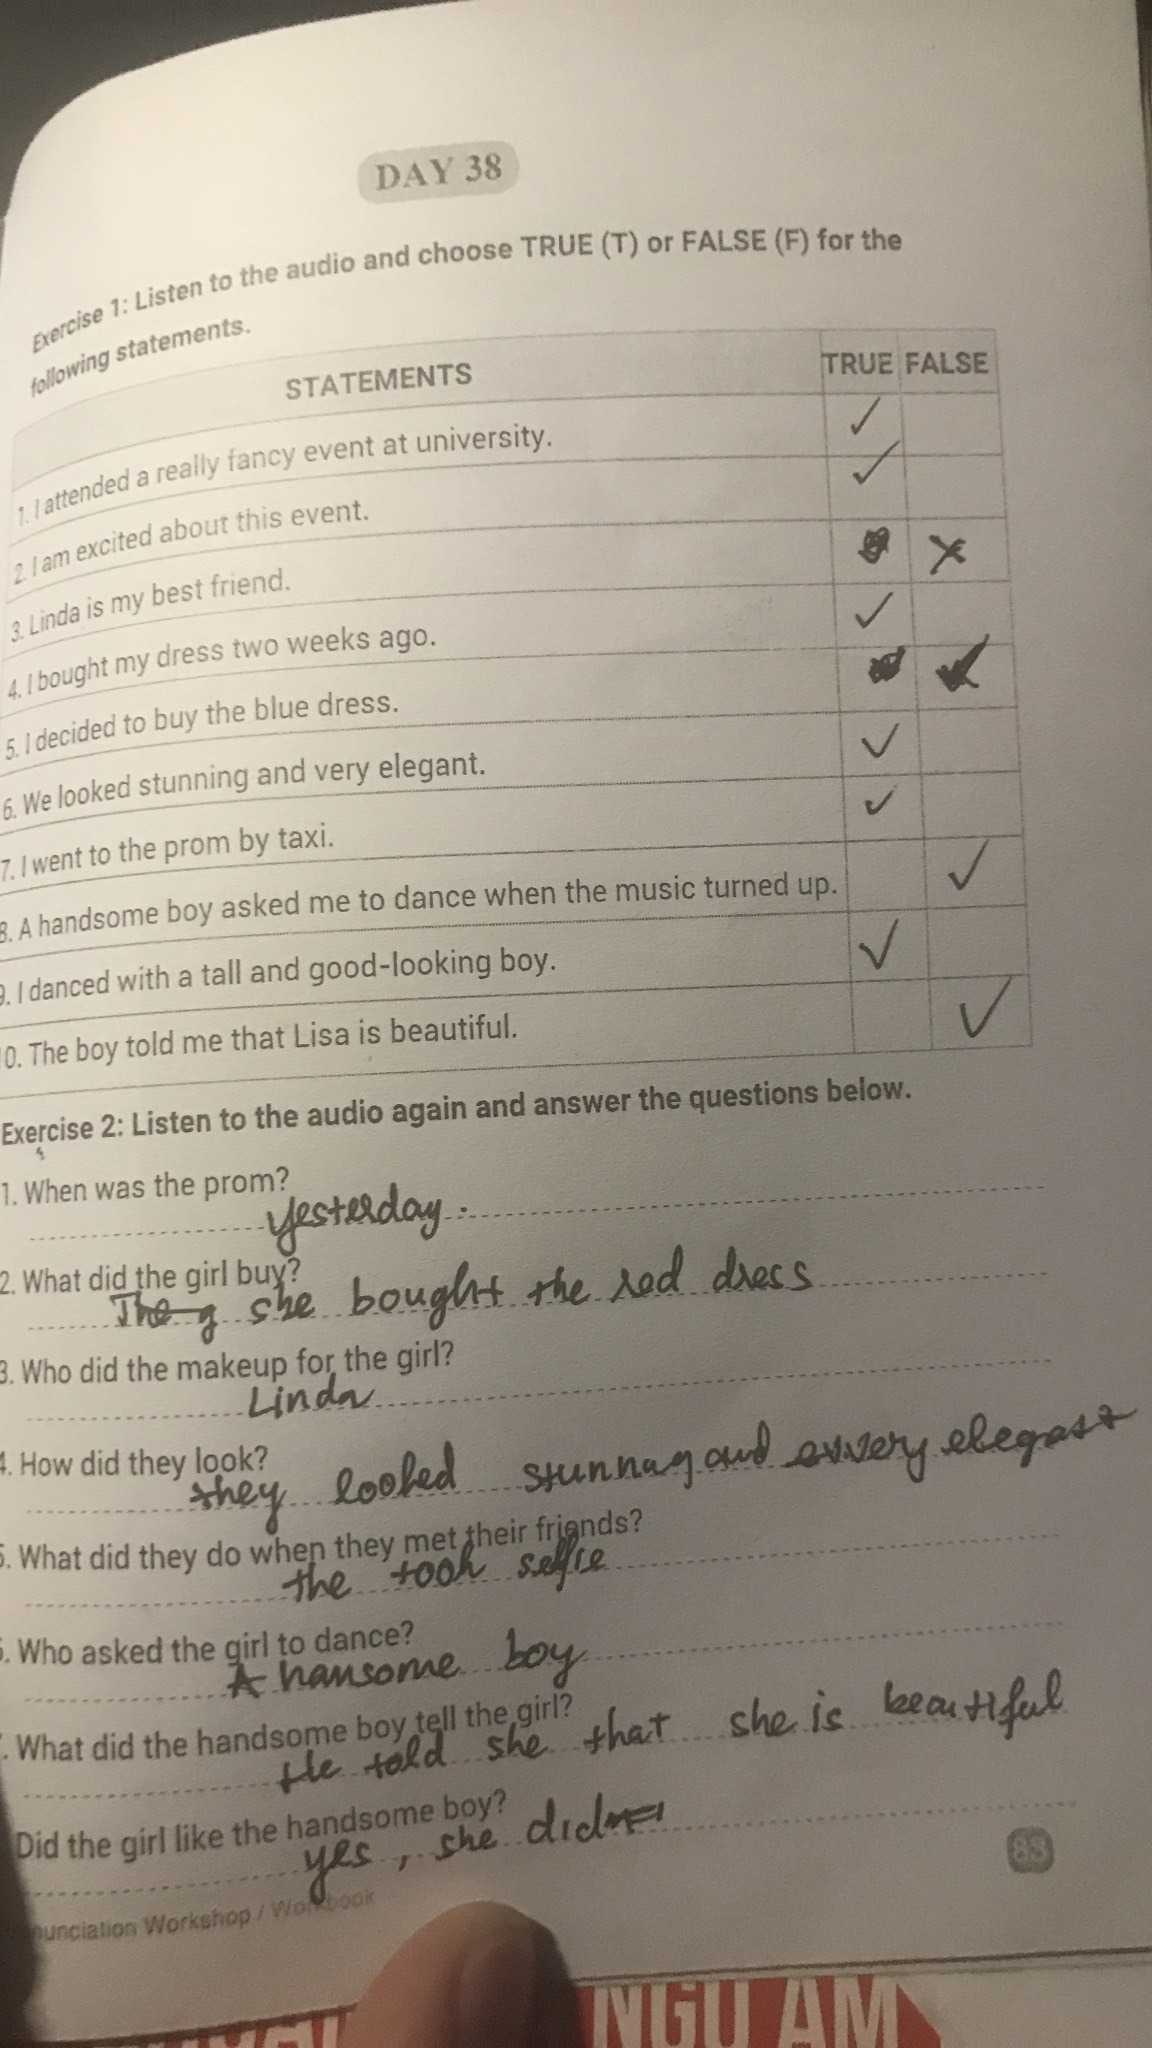 DAY 38
Exercise 1: Listen to the audio and choose TRUE (T) or FALSE (F) for the
following statements.
STATEMENTS TRUE FALSE
1. I attended a really fancy event at university. ✓
2. I am excited about this event. ✓
3. Linda is my best friend. ✗
4. I bought my dress two weeks ago. ✓
5. I decided to buy the blue dress. ✓
6. We looked stunning and very elegant. ✓
7. I went to the prom by taxi. ✓
8. A handsome boy asked me to dance when the music turned up. ✓
9. I danced with a tall and good-looking boy. ✓
0. The boy told me that Lisa is beautiful. ✓
Exercise 2: Listen to the audio again and answer the questions below.
1. When was the prom?
yesterday.
2. What did the girl buy?
The g she bought the red dress
3. Who did the makeup for the girl?
Linda
4. How did they look?
they looked stunnag and very elegant
5. What did they do when they met their friends?
the took selfie
6. Who asked the girl to dance?
A hansome boy
. What did the handsome boy tell the girl?
He told she that she is beautiful
Did the girl like the handsome boy?
yes, she did
83
nunciation Workshop / Workbook
NGỮ ÂM